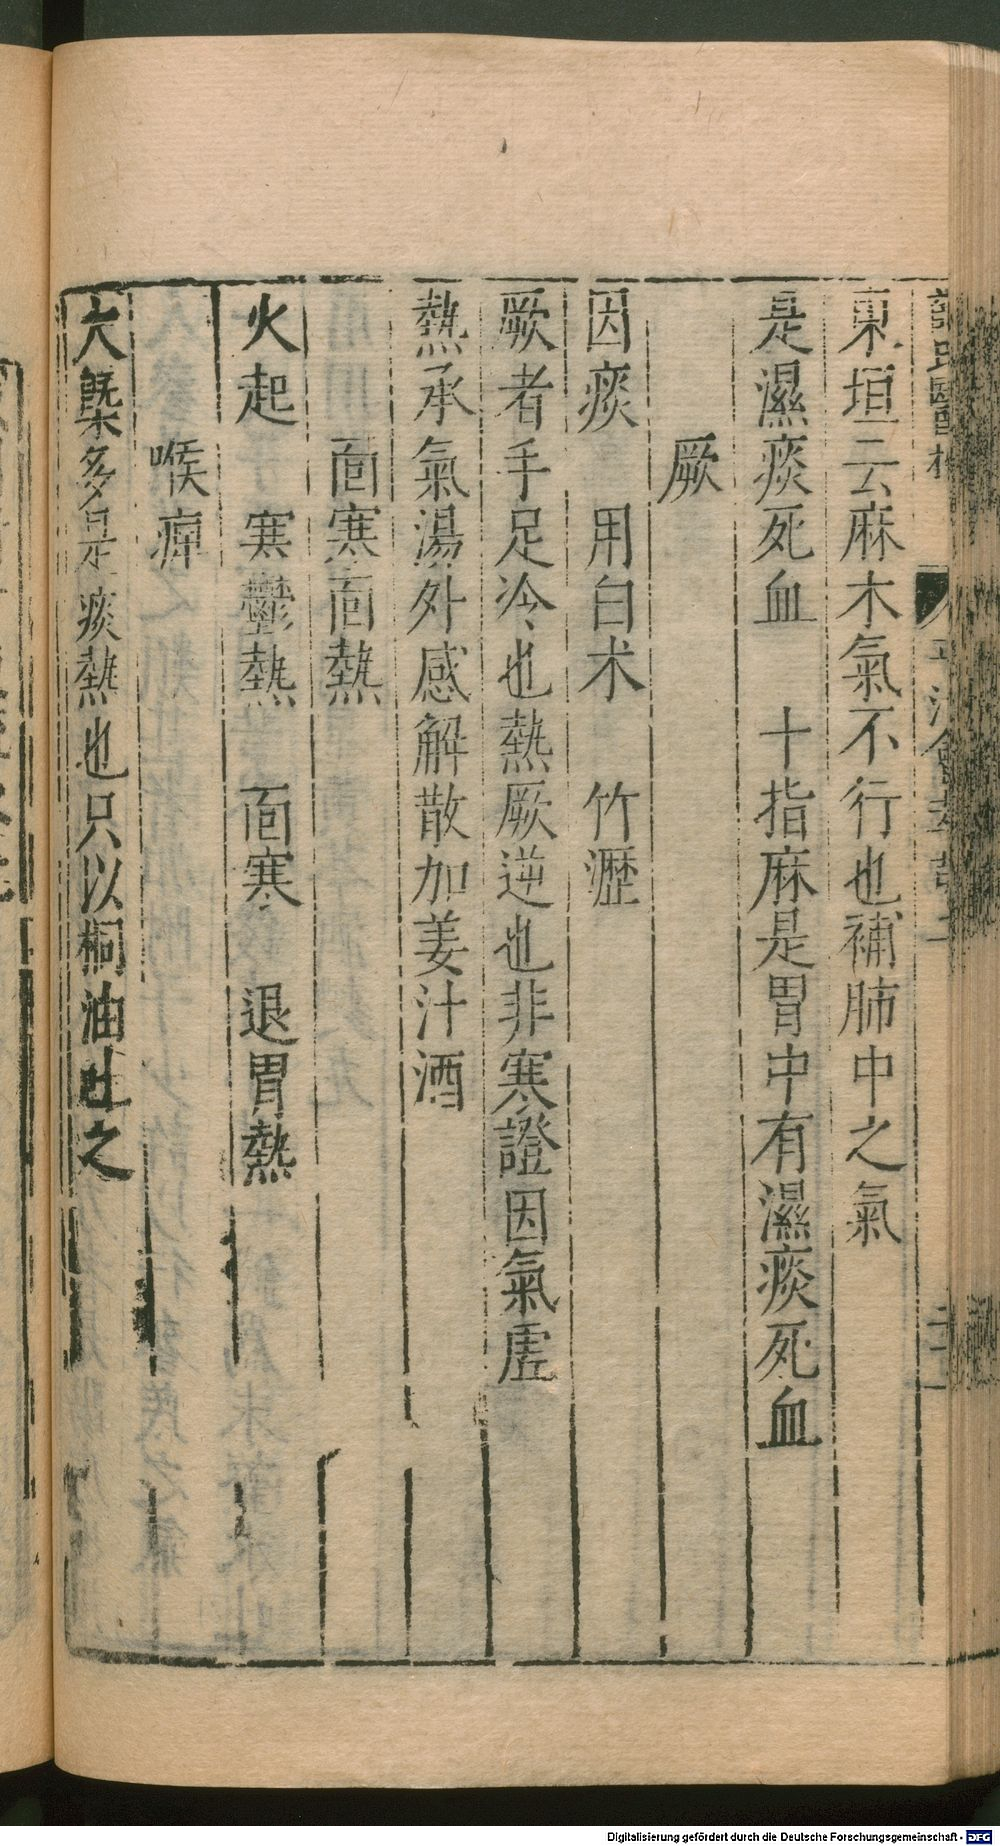 東垣云麻木氣不行也補肺中之氣
是濕痰死血　十指麻是胃中有濕痰死血
厥
因痰　用白术　竹瀝
厥者手足冷也熱厥逆也非寒證因氣虛
熱承氣湯外感解散加姜汁酒
面寒面熱
火起　寒鬱熱　面寒　退胃熱
喉痺
大槩多是痰熱也只以桐油吐之
Digitalisierung gefördert durch die Deutsche Forschungsgemeinschaft - DFG